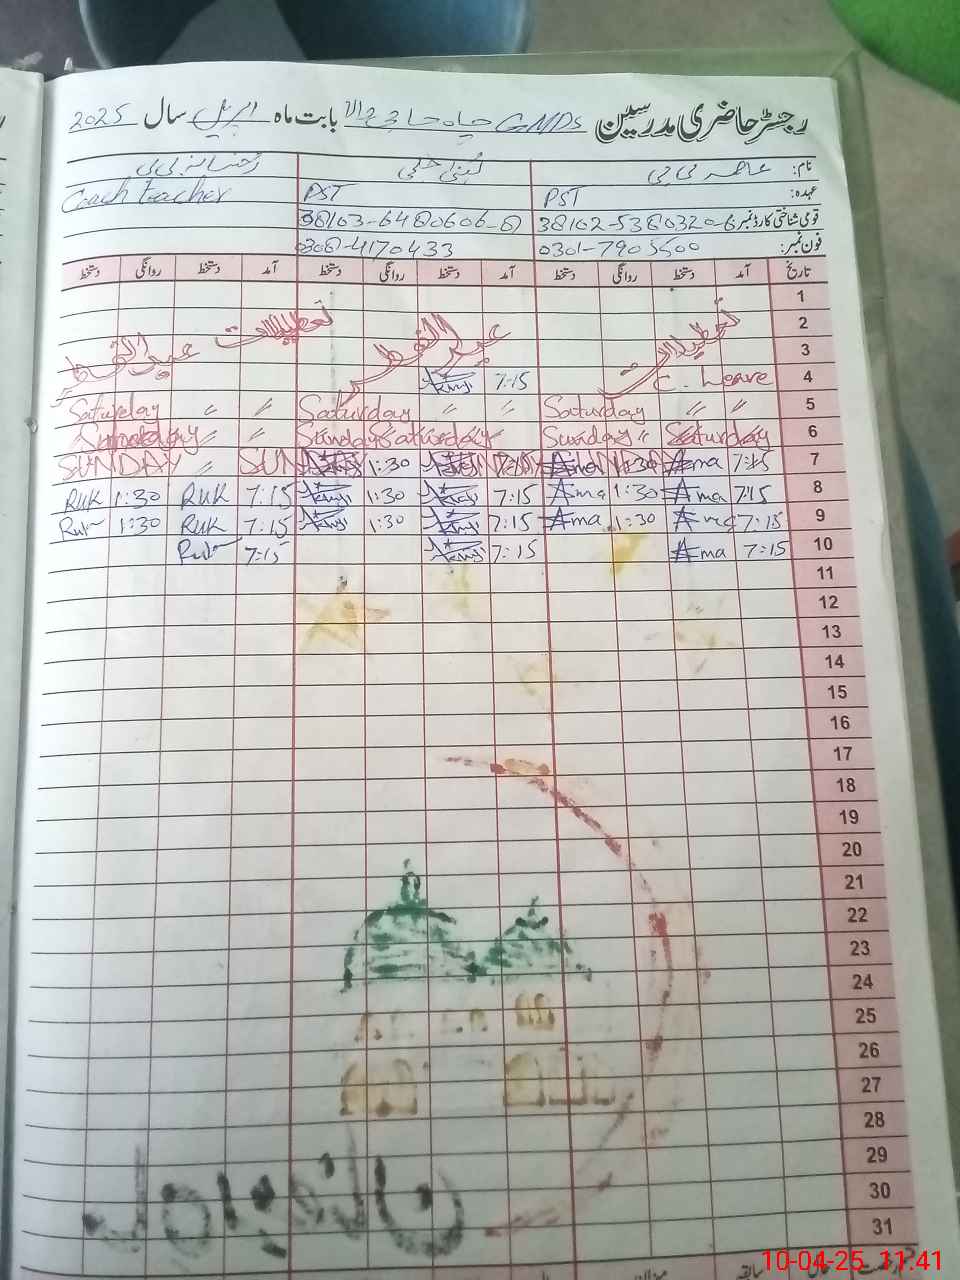 رجسٹر حاضری مدرسین GMPS چاہ حاجی والا بابت ماہ اپریل سال 2025
نام: عاصمہ بی بی لبنیٰ رخسانہ بی بی
عہدہ: PST PST Coach teacher
قومی شناختی کارڈ نمبر 38102-5380320-6 38103-6480606-8
فون نمبر: 0301-7905500 0308-4170433
تاریخ آمد دستخط روانگی دستخط آمد دستخط روانگی دستخط آمد دستخط روانگی دستخط
1
2 تعطیلات عید الفطر تعطیلات
3 تعطیلات عید الفطر
4 C. Leave 7:15
5 Saturday " " Saturday " " Saturday " "
6 Saturday Sunday " Saturday Sunday " " Sunday
7 7:15 Ama 1:30 Ama 7:15 1:30 SUNDAY " SUNDAY
8 7:15 Ama 1:30 Ama 7:15 1:30 7:15 Ruk 1:30 Ruk
9 7:15 Ama 1:30 Ama 7:15 1:30 7:15 Ruk 1:30 Ruk
10 7:15 Ama 7:15 7:15 Ruk
11
12
13
14
15
16
17
18
19
20
21
22
23
24
25
26
27
28
29
30
31
سابقہ میزان
10-04-25 11:41